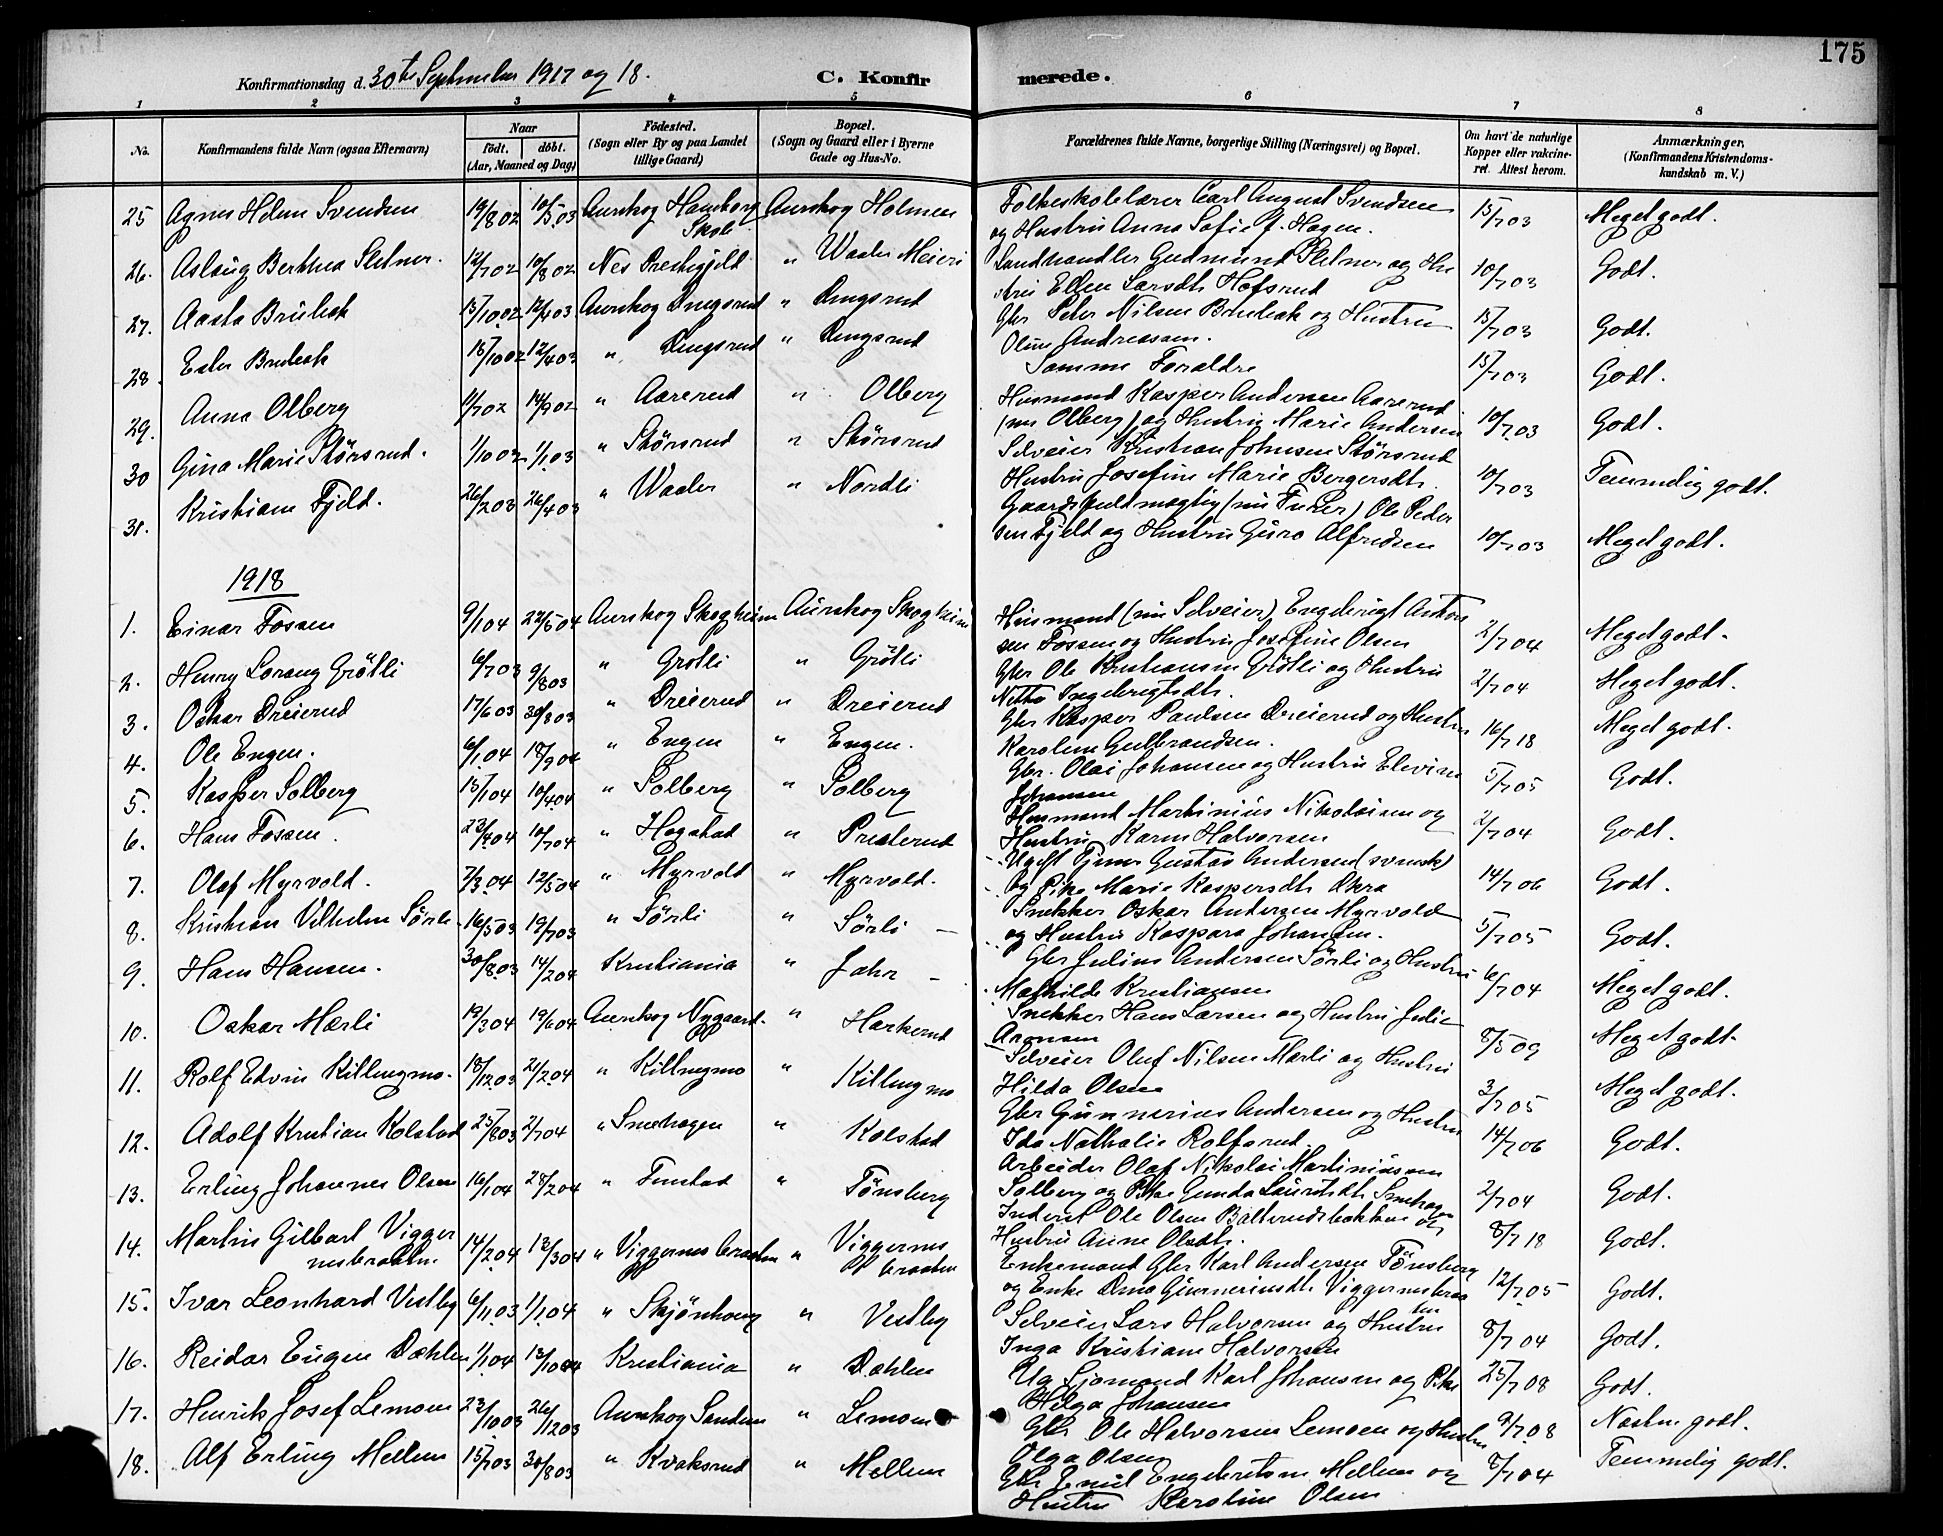 175
Konfirmationsdag d. 30te September 1917 og 18. C. Konfirmerede.
1 2 3 4 5 6 7 8
No. Konfirmandens fulde Navn (ogsaa Efternavn) Naar født. døbt. (Aar, Maaned og Dag) Fødested. (Sogn eller By og paa Landet tillige Gaard) Bopæl. (Sogn og Gaard eller i Byerne Gade og Hus-No. Forældrenes fulde Navne, borgerlige Stilling (Næringsvei) og Bopæl. Om havt de naturlige Kopper eller vakcineret. Attest herom. Anmærkninger, (Konfirmandens Kristendomskundskab m. V.)
25 Agnes Helene Svendsen 19/8 02 10/5 03 Aurskog Haneborg Skole Aurskog Holmen Folkeskolelærer Carl August Svendsen
og Hustru Anna Sofie f. Hagen. 15/7 03 Meget godt.
26. Aslaug Berthea Sletner. 12/7 02 10/8 02 Nes Prestegjeld " Waaler Meieri Landhandler Gudmund Sletner og Hu
stru Ellen Larsdtr Hofsrud 10/7 03 Godt.
27. Aasta Brubak 15/10 02 12/4 03 Aurskog Dingsrud " Dingsrud Gbr Peter Nilsen Brubak og Hustru
Oline Andreassen. 15/7 03 Godt.
28. Ester Brubak 15/10 02 12/4 03 " Dingsrud " Dingsrud Samme Foraldre 15/7 03 Godt.
29. Anna Olberg 11/7 02 14/9 02 " Aarerud " Olberg Husmand Kasper Andersen Aarerud
(nu Olberg) og Hustru Marie Andersen 10/7 03 Godt.
30 Gina Marie Störsrud. 1/10 02 1/1 03 " Störsrud " Störsrud Selveier Kristian Johnsen Störsrud
Hustru Josefine Marie Bergersdtr. 10/7 03 Temmelig godt.
31. Kristiane Fjeld. 26/2 03 26/4 03 " Waaler " Nordli Gaardsfuldmægtig (nu ) Ole Peder
sen Fjeld og Hustru Guro Alfredsen 10/7 03 Meget godt.
1918
1. Einar Fossen 9/1 04 22/5 04 Aurskog Skogheim Aurskog Skogheim Husmand (nu Selveier) Engebrigt Anton
sen Fossen og Hustru Josefine Olsen 2/7 04 Meget godt.
2. Henry Lorang Grötli 6/7 03 9/8 03 " Grötli " Grötli Gbr Ole Kristiansen Grötli og Hustru
Netta Ingebrigtsdtr. 2/7 04 Meget godt.
3. Oskar Dreierud 17/6 03 30/8 03 " Dreierud " Dreierud Gbr Kasper Paulsen Dreierud og Hustru
Karoline Gulbrandsen. 16/7 18 Meget godt.
4. Ole Engen. 6/1 04 18/9 04 " Engen " Engen. Gbr. Olai Johansen og Hustru Elevine
Johansen 5/7 05 Godt.
5. Kasper Solberg 15/1 04 10/4 04 " Solberg " Solberg Husmand Martinius Nikolaisen og
Hustru Karen Halvorsen 2/7 04 Godt.
6. Hans Fossen. 23/4 04 10/7 04 " Hogstad " Presterud Ugift Tjener Gustav Andersen (svensk)
og Pike Marie Kaspersdtr Okra 14/7 06 Godt.
7. Olaf Myrvold. 7/3 04 12/5 04 " Myrvold " Myrvold. Snekker Oskar Andersen Myrvold
og Hustru Kaspara Johansen. 5/7 05 Godt.
8. Kristian Vilhelm Sörli 16/5 03 19/7 03 " Sörli " Sörli Gbr Julius Andersen Sörli og Hustru
Mathilde Kristiansen 6/7 04 Meget godt.
9. Hans Hansen. 30/8 03 14/2 04 Kristiania " Jahr Snekker Hans Larsen og Hustru Julie
Aronsen 8/5 09 Meget godt.
10. Oskar Mærli 19/3 04 19/6 04 Aurskog Nygaard. " Harkerud Selveier Oluf Nilsen Mærli og Hustru
Hilda Olsen 3/7 05 Meget godt.
11. Rolf Edvin Killingmo. 18/12 03 21/2 04 " Killingmo " Killingmo Gbr Gunnerius Andersen og Hustru
Ida Nathalie Rolfsrud. 14/7 06 Godt.
12. Adolf Kristian Kolstad 25/8 03 2/7 04 " Smehagen " Kolstad Arbeider Olaf Nikolai Martiniussen
Solberg og Pike Gunda Lauritsdtr Smehagen 2/7 04 Godt.
13. Erling Johannes Olsen 16/1 04 28/2 04 " Finstad " Tönsberg Inderst Ole Olsen Balterudsbakken og
Hustru Anne Olsdtr. 8/7 18 Godt.
14. Martin Gilbart Vigger
nesbraaten 14/2 04 13/3 04 " Viggernesbraaten " Viggernes
braaten Enkemand Gbr Karl Andersen Tönsberg
og Enke Gunneriusdtr Viggernesbraa
ten 12/7 05 Godt.
15. Ivar Leonhard Vestby 6/11 03 1/1 04 " Skjönhaug " Vestby Selveier Lars Halvorsen og Hustru
Inga Kristiane Halvorsen 8/7 04 Godt.
16. Reidar Eugen Dahlen 1/1 04 13/10 04 Kristiania " Dahlen Ug Sjømand Karl Johansen og Pike
Helga Johansen 25/7 08 Godt.
17. Henrik Josef Lemoen 23/10 03 26/12 03 Aurskog Sanden " Lemoen Gbr Ole Halvorsen Lemoen og Hustru
Olga Olsen 9/7 08 Næsten godt.
18. Alf Erling Mellem 15/7 03 30/8 03 " Kvaksrud " Mellem Gbr Emil Engebretsen Mellem og
Hustru Karoline Olsen 8/7 04 Temmelig godt.